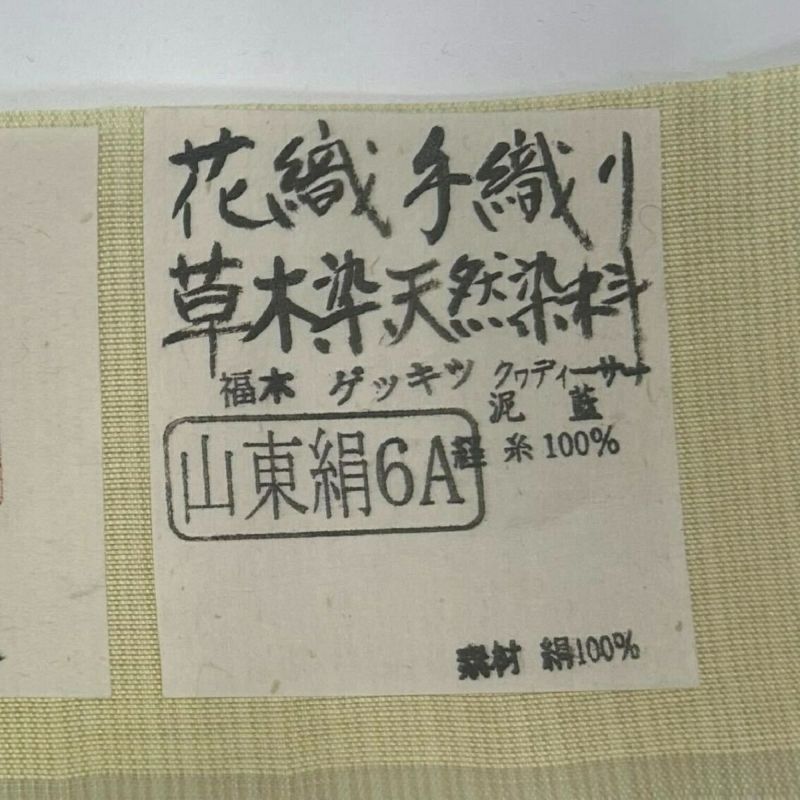 花織 手織り
草木染 天然染料
福木 ゲッキツ クヮディーサー
泥 藍
山東絹6A 経糸100%
素材 絹100%